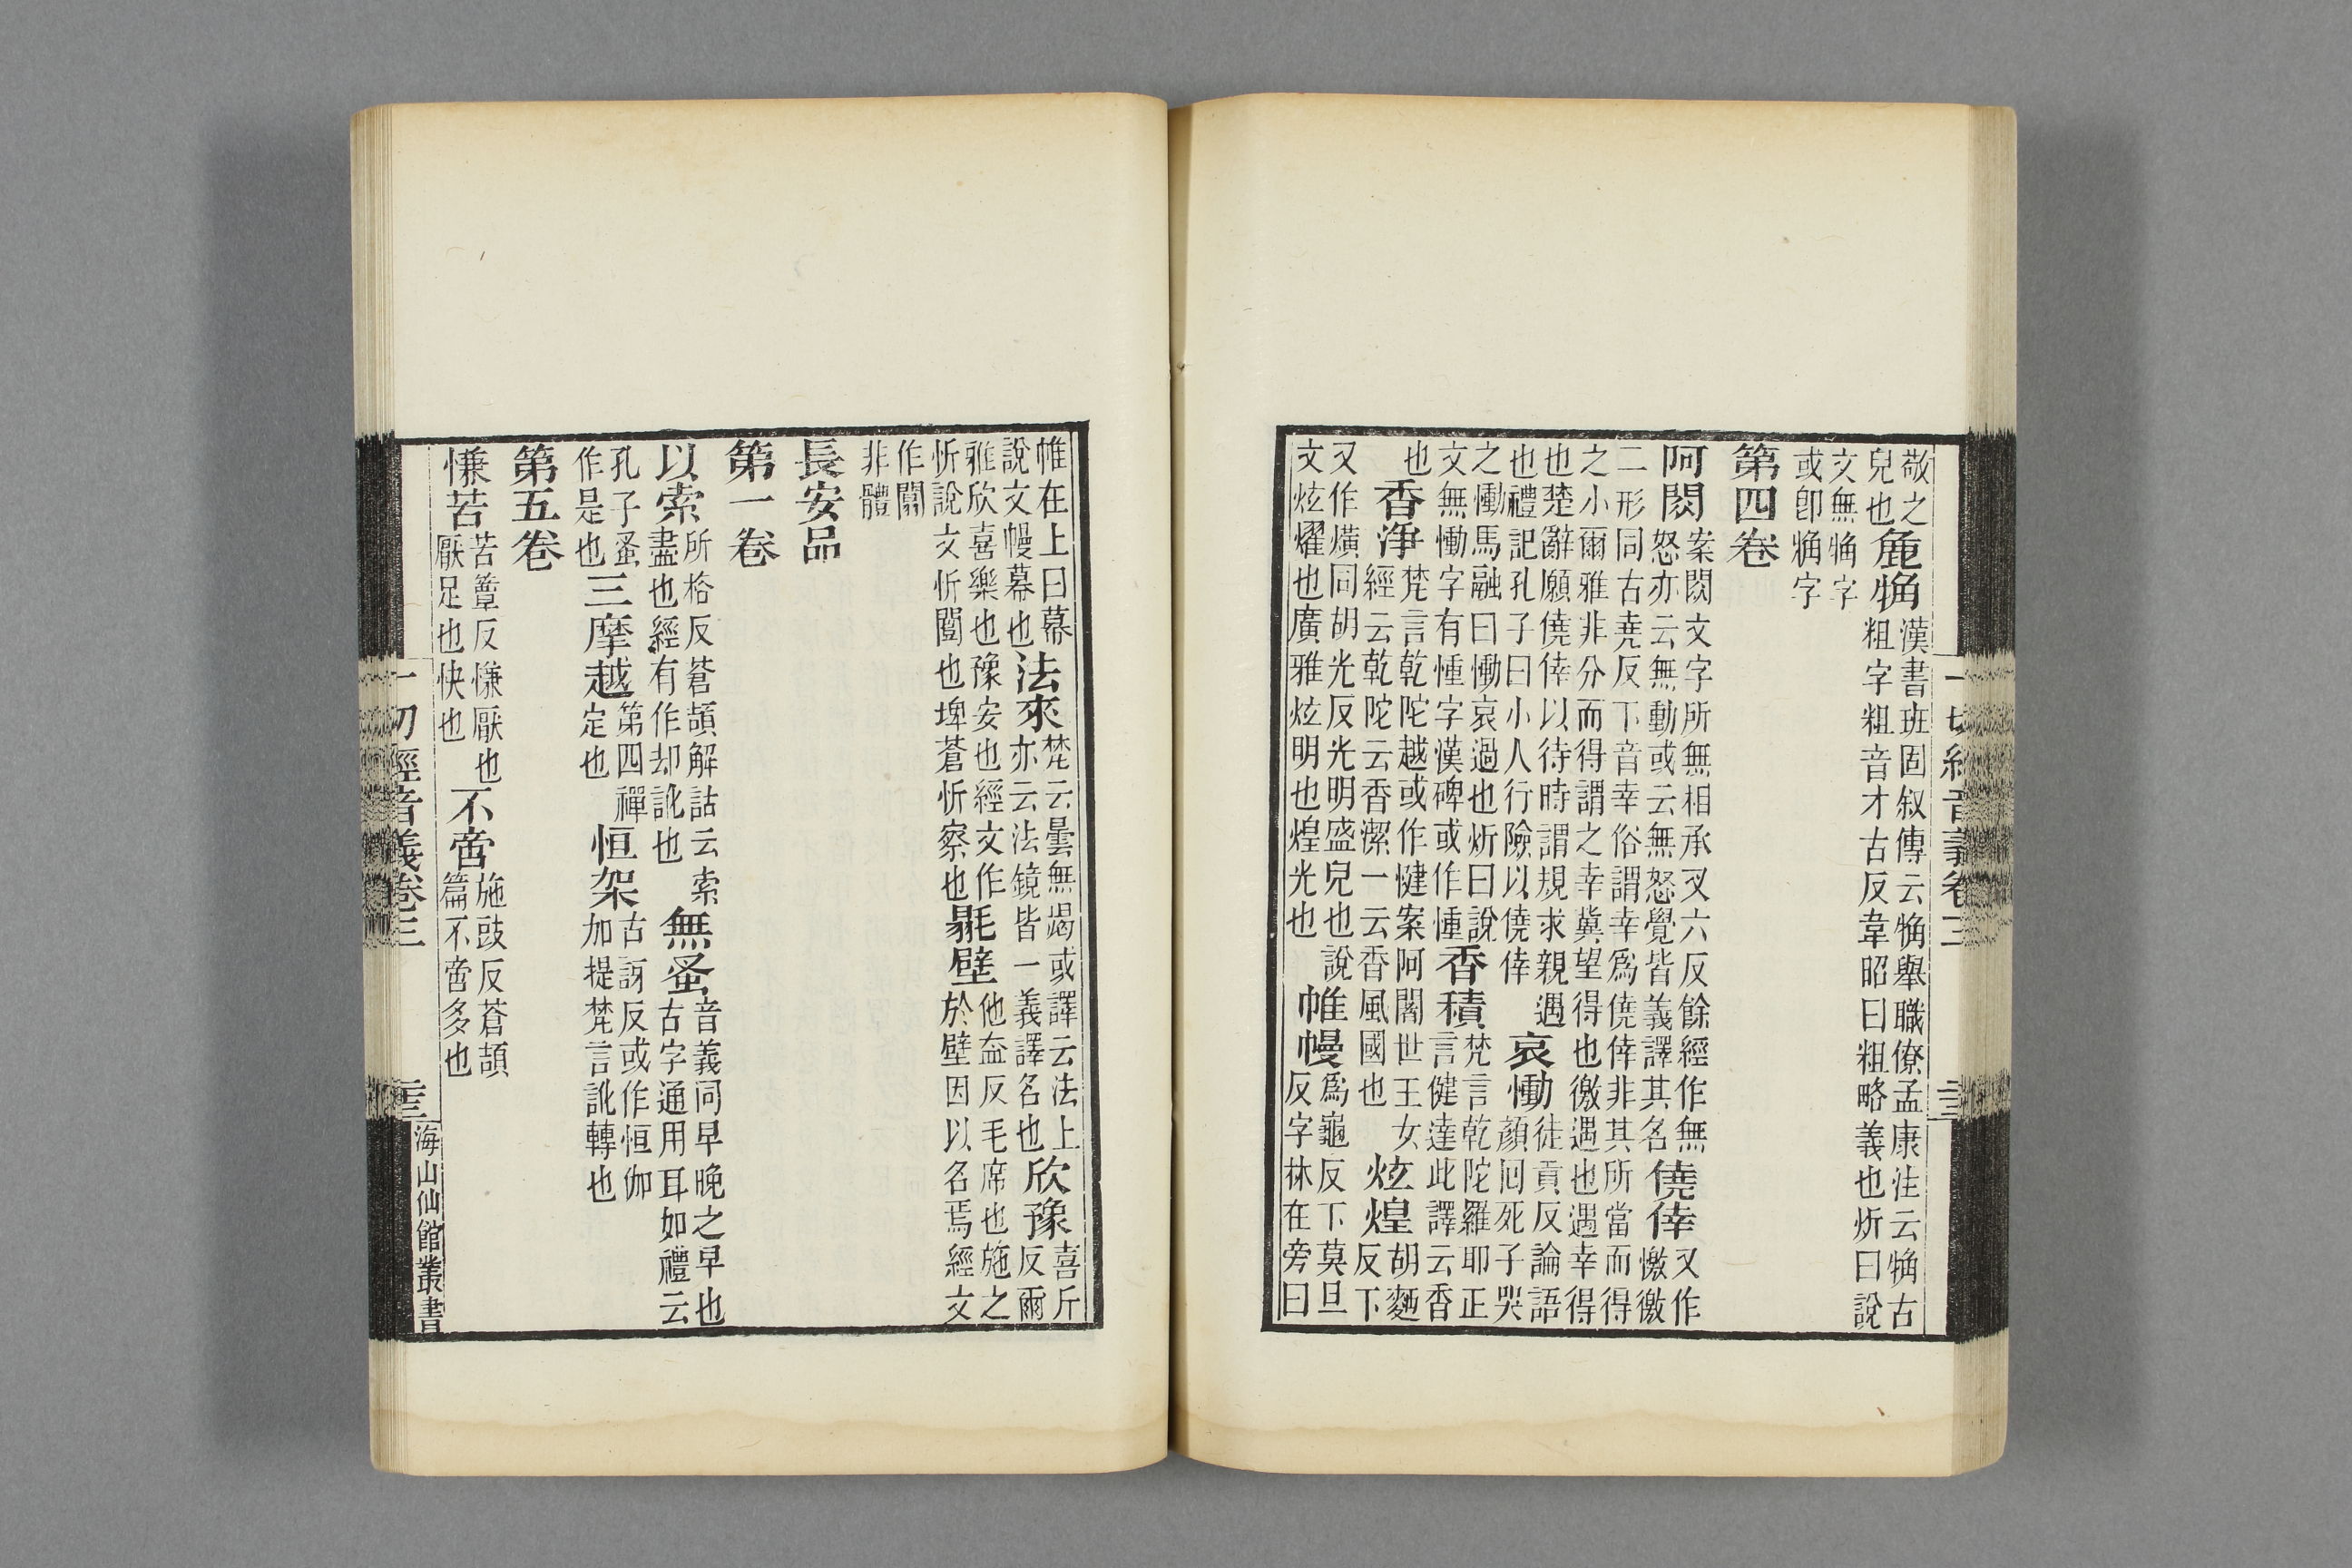 一切經音義卷三
敬之皃也麁觕漢書班固叙傳云觕舉職僚孟康注云觕古粗字粗音才古反韋昭曰粗略義也炘曰說
文無觕字或卽觕字
第四卷
阿閦案閦文字所無相承叉六反餘經作無怒亦云無動或云無怒覺皆義譯其名僥倖又作憿徼
二形同古堯反下音幸俗謂幸爲僥倖非其所當而得之小爾雅非分而得謂之幸冀望得也徼遇也遇幸得
也楚辭願僥倖以待時謂規求親遇也禮記孔子曰小人行險以僥倖哀慟徒貢反論語顏回死子哭
之慟馬融曰慟哀過也炘曰說文無慟字有憧字漢碑或作憧香積梵言乾陀羅耶正言健達此譯云香
也香淨梵言乾陀越或作犍案阿闍世王女經云乾陀云香潔一云香風國也炫煌胡麵反下
又作爌同胡光反光明盛皃也說文炫燿也廣雅炫明也煌光也帷幔爲龜反下莫旦反字林在旁曰
帷在上曰幕說文幔幕也法來梵云曇無竭或譯云法上亦云法鏡皆一義譯名也欣豫喜斤反爾
雅欣喜樂也豫安也經文作忻說文忻闓也埤蒼忻察也毾壁他盍反毛席也施之於壁因以名焉經文
作闒非體
長安品
第一卷
以索所格反蒼頡解詁云索盡也經有作却訛也無蚤音義同早晚之早也古字通用耳如禮云
孔子蚤作是也三摩越第四禪定也恒架古訝反或作恒伽加提梵言訛轉也
第五卷
慊苦苦簟反慊厭也厭足也快也不啻施豉反蒼頡篇不啻多也
一切經音義卷三
海山仙館叢書